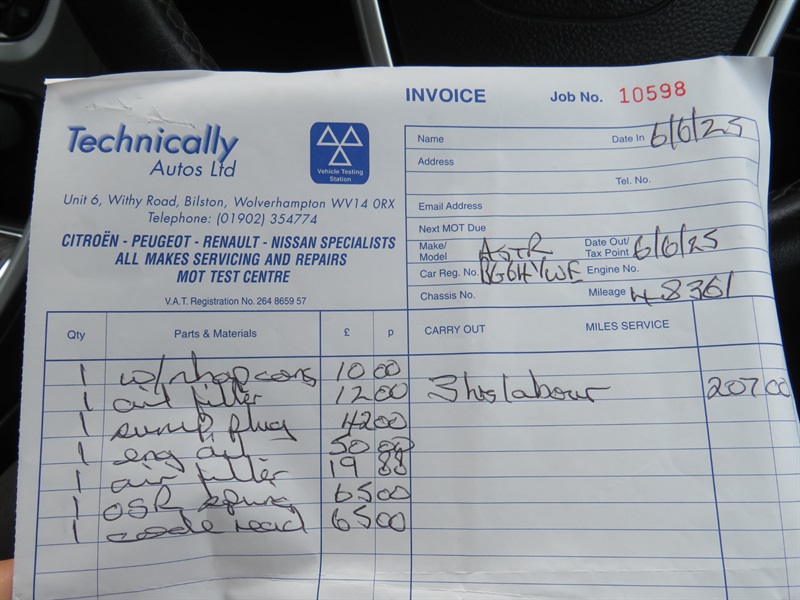 INVOICE Job No. 10598
Technically
Autos Ltd
Vehicle Testing
Station
Unit 6, Withy Road, Bilston, Wolverhampton WV14 0RX
Telephone: (01902) 354774
CITROËN - PEUGEOT - RENAULT - NISSAN SPECIALISTS
ALL MAKES SERVICING AND REPAIRS
MOT TEST CENTRE
V.A.T. Registration No. 264 8659 57
Name Date In 6/6/25
Address
Tel. No.
Email Address
Next MOT Due
Make/
Model ASTR Date Out/
Tax Point 6/6/25
Car Reg. No. Engine No.
Chassis No. Mileage 48361
Qty Parts & Materials £ p CARRY OUT MILES SERVICE
1 w/shop cons 10 00
1 oil filter 12 00 3 hrs labour 207 00
1 sump plug 42 00
1 eng oil 50 00
1 air filter 19 88
1 OSR spring 65 00
1 code read 65 00